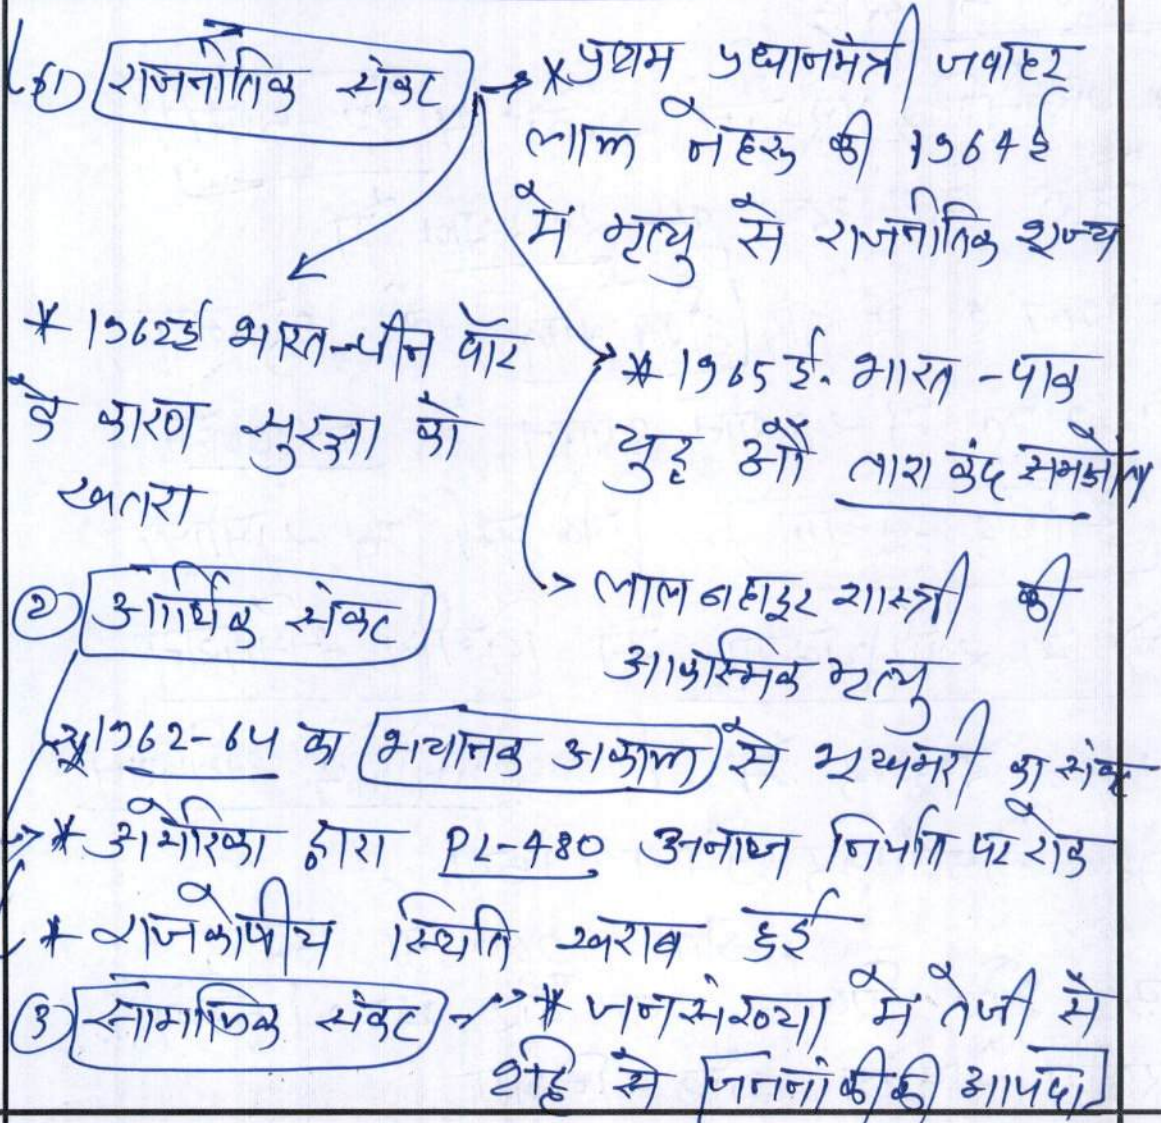 (1) राजनीतिक संकट → * प्रथम प्रधानमंत्री जवाहर
लाल नेहरू की 1964 ई
में मृत्यु से राजनीतिक शून्य
* 1962 ई भारत-चीन वॉर
के कारण सुरक्षा को
खतरा
* 1965 ई. भारत - पाक
युद्ध और ताशकंद समझौता
→ लाल बहादुर शास्त्री की
आकस्मिक मृत्यु
(2) आर्थिक संकट
* 1962-64 का भयानक अकाल से भूखमरी का संकट
→ * अमेरिका द्वारा PL-480 अनाज निर्यात पर रोक
* राजकोषीय स्थिति खराब हुई
(3) सामाजिक संकट → * जनसंख्या में तेजी से
वृद्धि से जननांकीकी आपदा